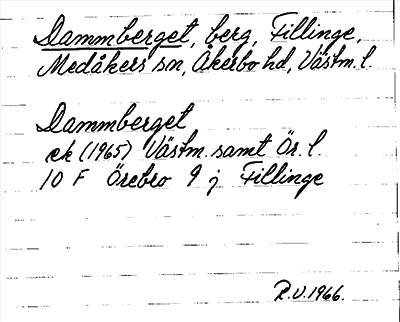 Dammberget, berg, Fillinge,
Medåkers sn, Åkerbo hd, Västm. l.
Dammberget
ek (1965) Västm. samt Ör. l.
10 F Örebro 9 j Fillinge
R.U. 1966.